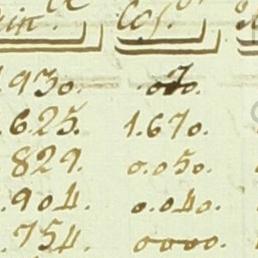 in. Cos.
.930.
.625. 1.670.
829. 0.050.
.904. 0.040.
.754. 0000.